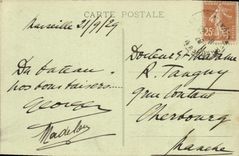 CARTE POSTALE
Marseille 21/9/29
Du bateau
nos bons baisers....
Georges
Madelon
Docteur & Madame
R. Tanguy
Quai Coutant
Cherbourg
Manche
25